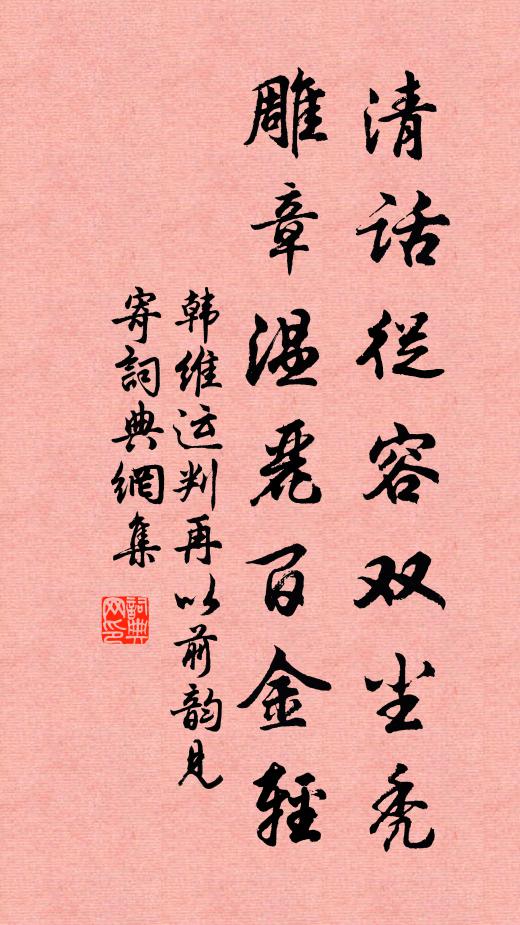 清话从容双尘秃
雕章温丽百金轻
韩维运判再以前韵见
寄词典網集
詞典网印